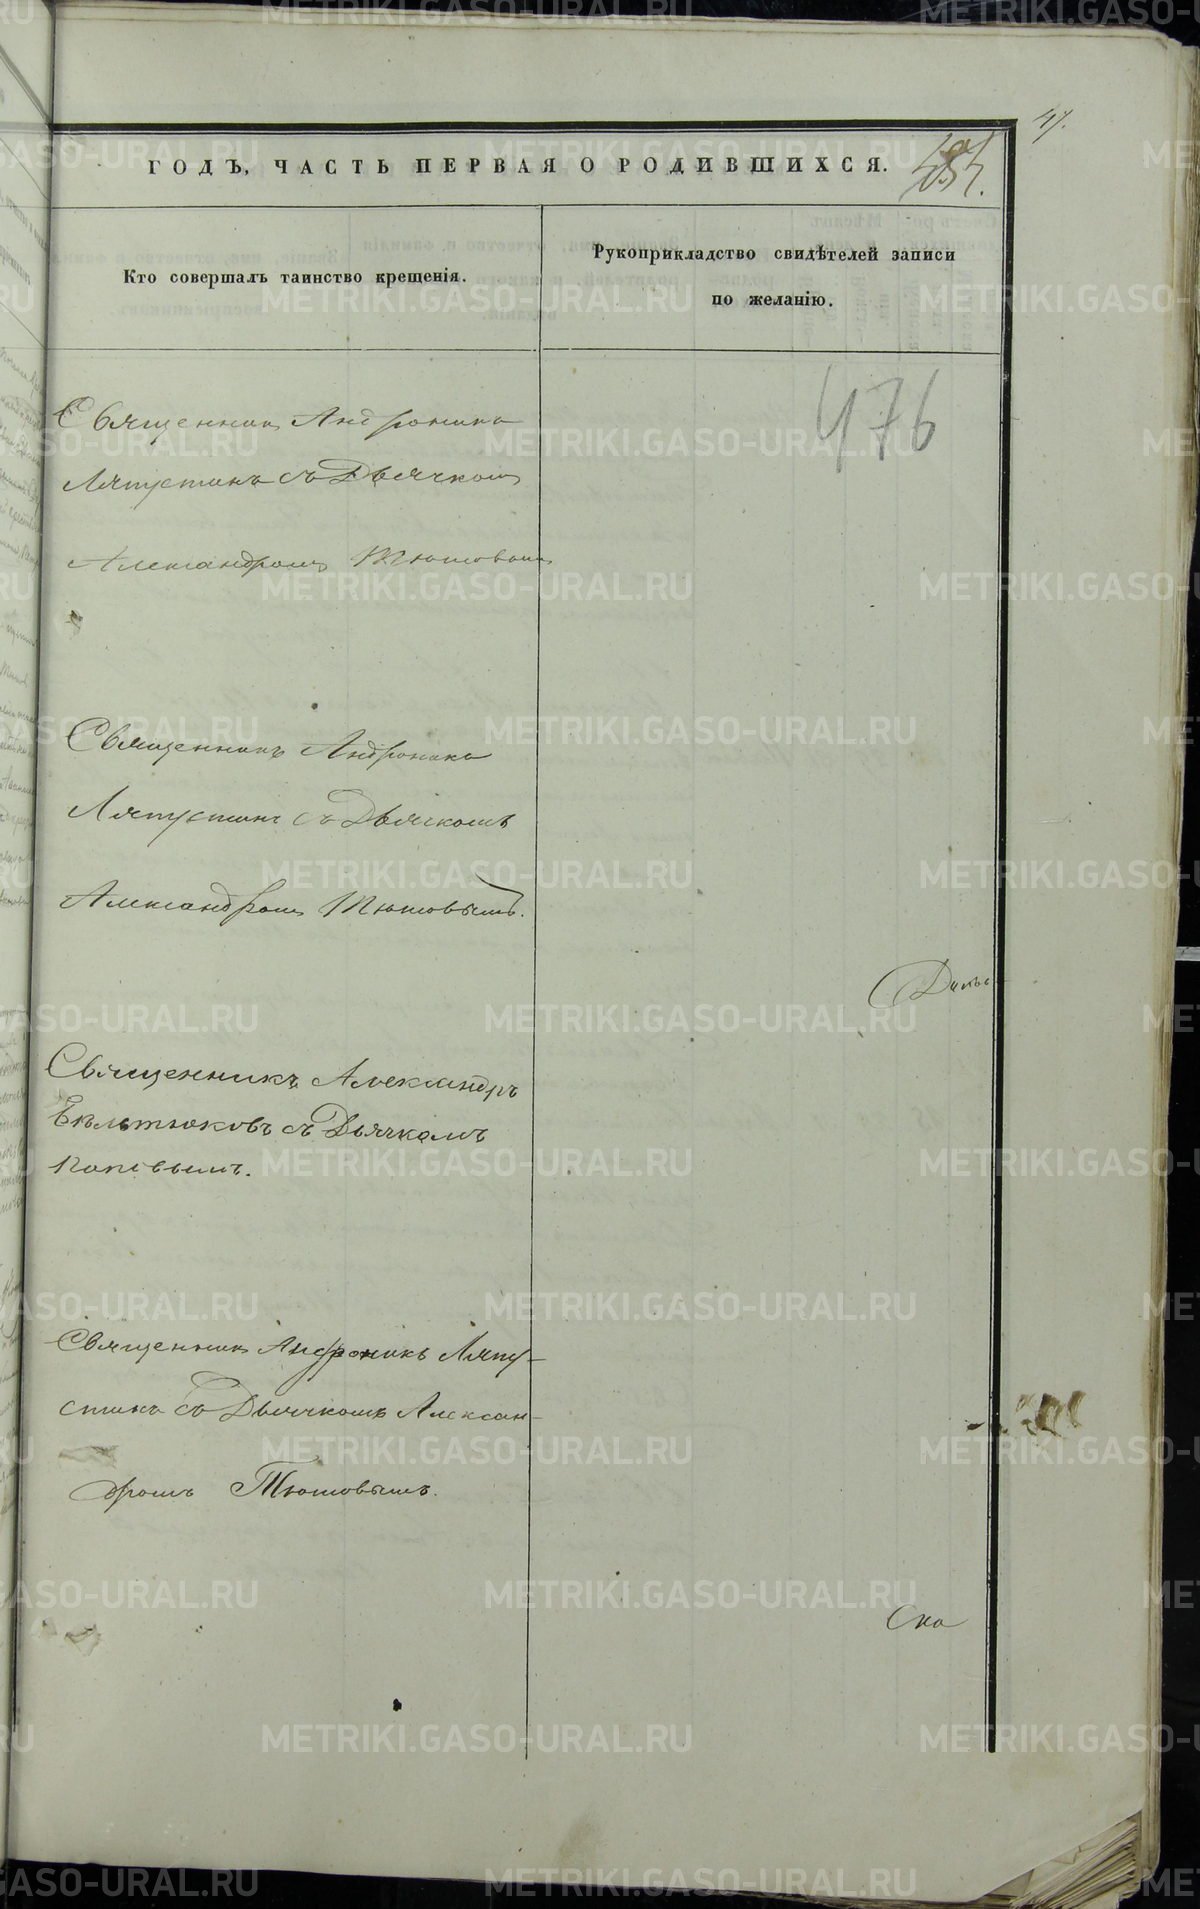 47.
ГОДЪ, ЧАСТЬ ПЕРВАЯ О РОДИВШИХСЯ.
Кто совершалъ таинство крещенія.
Рукоприкладство свидѣтелей записи
по желанію.
476
Священникъ Андроникъ
Ляпустинъ съ Дьячкомъ
Александромъ Тютовымъ
Священникъ Андроникъ
Ляпустинъ съ Дьячкомъ
Александромъ Тютовымъ.
Священникъ Александръ
Бѣльтюковъ съ Дьячкомъ
Поповымъ.
Священникъ Андроникъ Ляпу-
стинъ съ Дьячкомъ Алексан-
дромъ Тютовымъ.
Ска
METRIKI.GASO-URAL.RU